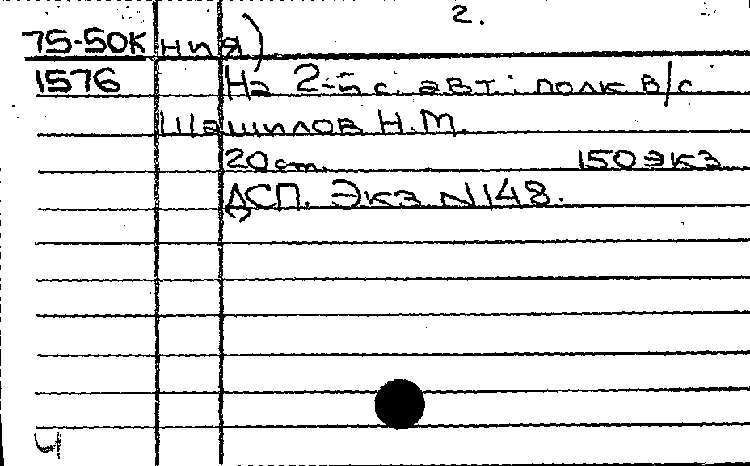 2.
75-50К ния)
1576 На 2-й с. авт.: полк в/с
Шашилов Н.М.
20 см. 150 экз
ДСП. Экз N148.